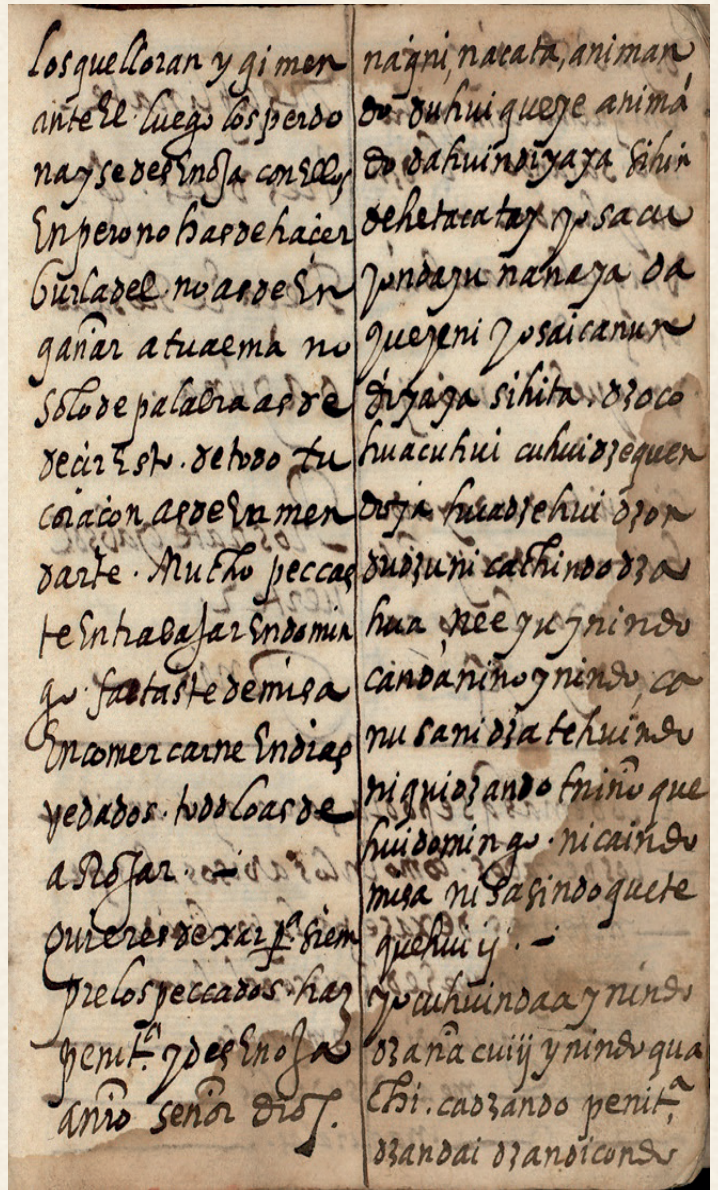 los que lloran y gimen
ante El. luego los perdo
na y se desEnoJa con Ellos
Enpero no has de hacer
burla del. no as de En
gañar a tu aema no
solo de palabra as de
decir Esto. de todo tu
coracon as de Enmen
darte. Mucho peccas
te En trabaJar En domin
go. faltaste de misa
En comer carne En dias
vedados. todo lo as de
aRoJar. —
Quieres dexar pª. siem
pre los peccados. haz
penit.ª y desEnoJa
a nr̃o señor dios.
nagni, nacata, animan
do duhui queye animá
do dahuindiyaya sihin
dehetacatay yo sacu
yondayu nanaya da
queyeni yosaicanun
diyaya sihita. dzoco
huacuhui cuhuidzequen
doya huadzehui dzon
dudzuni cachindodza
hua ñee yuynindo
candá nino ynindo, ca
nu sanidza tehuindo
niquidzando tniño que
hui domingo. nicaindo
misa nisasindo quete
quehui ij. —
yo cuhuindaa ynindo
dzaña cuiij ynindo qua
chi. cadzando penit.ª,
dzandai dzandicondo